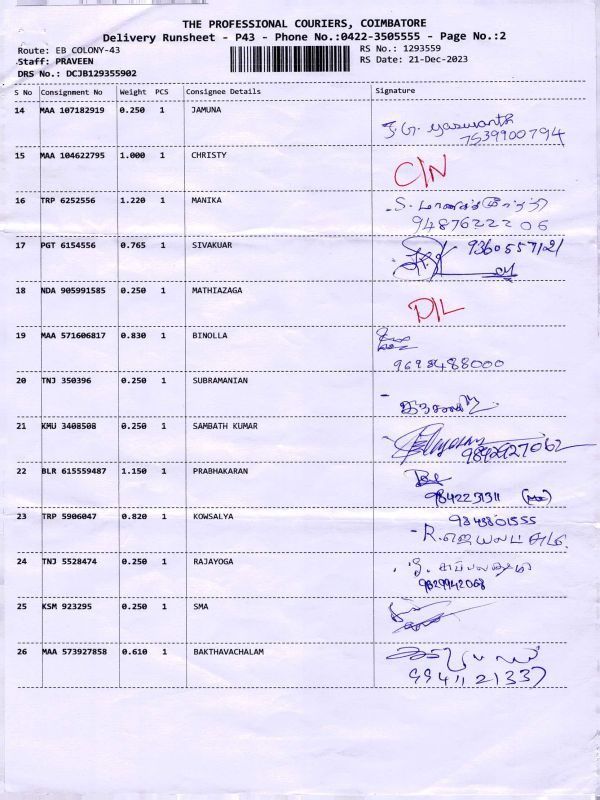 THE PROFESSIONAL COURIERS, COIMBATORE
Delivery Runsheet - P43 - Phone No.:0422-3505555 - Page No.:2
Route: EB COLONY-43 RS No.: 1293559
Staff: PRAVEEN RS Date: 21-Dec-2023
DRS No.: DCJB129355902
S No Consignment No Weight PCS Consignee Details Signature
14 MAA 107182919 0.250 1 JAMUNA J.G. yaswanth
7539900794
15 MAA 104622795 1.000 1 CHRISTY C/N
16 TRP 6252556 1.220 1 MANIKA S.
9487622206
17 PGT 6154556 0.765 1 SIVAKUAR 9360557121
18 NDA 905991585 0.250 1 MATHIAZAGA D/L
19 MAA 571606817 0.830 1 BINOLLA
9698488000
20 TNJ 350396 0.250 1 SUBRAMANIAN
21 KMU 3408508 0.250 1 SAMBATH KUMAR
9842927062
22 BLR 615559487 1.150 1 PRABHAKARAN
9842231311
23 TRP 5906047 0.820 1 KOWSALYA 9843801555
R.
24 TNJ 5528474 0.250 1 RAJAYOGA
9829942068
25 KSM 923295 0.250 1 SMA
26 MAA 573927858 0.610 1 BAKTHAVACHALAM
9941121337